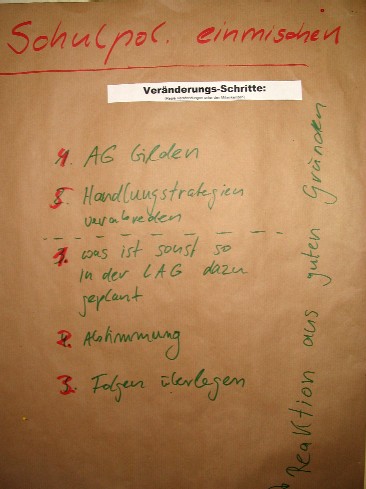 Schulpol. einmischen
Veränderungs-Schritte:
4. AG bilden
5. Handlungstrategien
verabreden
1. was ist sonst so
in der LAG dazu
geplant
2. Abstimmung
3. Folgen überlegen
Reaktion aus guten Gründen